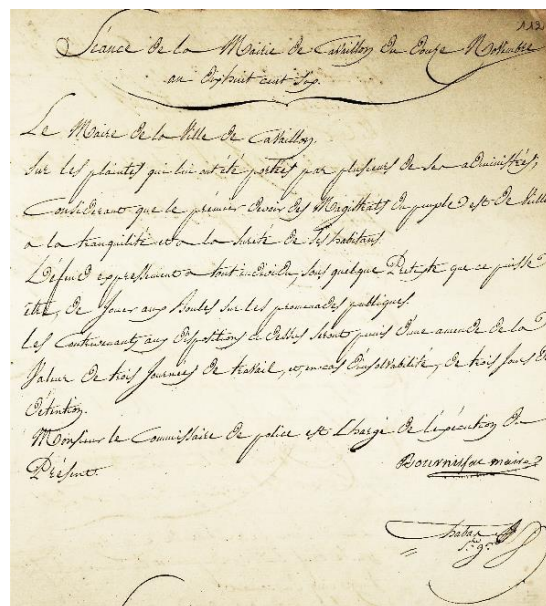 113
Séance de la Mairie de Cavaillon du douze Novembre
an dixhuit cent six.
Le Maire de la Ville de Cavaillon.
Sur les plaintes qui lui ont été portées par plusieurs de ses administrés,
Considerant que le premier devoir des Magistrats du peuple est de Veiller
a la tranquilité et a la sureté de ses habitans
Défend expressement a tout individu, sous quelque Pretexte que ce puisse
être, de jouer aux Boules sur les promenades publiques.
Les Contrevenants aux dispositions ci dessus seront punis d'une amende de la
Valeur de trois journées de travail, et, en cas d'insolvabilité, de trois jours de
détention.
Monsieur le Commissaire de police est Chargé de l'exécution du
Présent.
Bournissac maire
Chabas